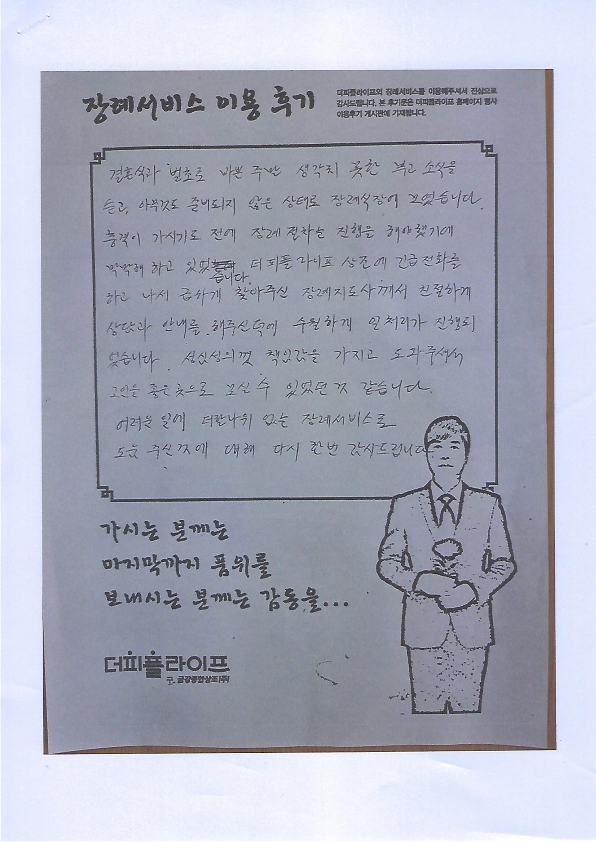 장례서비스 이용 후기
더피플라이프의 장례서비스를 이용해주셔서 진심으로
감사드립니다. 본 후기문은 더피플라이프 홈페이지 행사
이용후기 게시판에 기재됩니다.
결혼식과 벌초로 바쁜 주말 생각치 못한 부고 소식을
듣고, 아무것도 준비되지 않은 상태로 장례식장에 모였습니다.
충격이 가시기도 전에 장례 절차는 진행을 해야했기에
막막해 하고 있었습니다. 더피플라이프 상조에 긴급전화를
하고 나서 급하게 찾아주신 장례지도사께서 친절하게
상담과 안내를 해주신 덕에 수월하게 일처리가 진행되
었습니다. 성심성의껏 책임감을 가지고 도와주셔서
고인을 좋은 곳으로 보신 수 있었던 것 같습니다.
어려운 일에 더할나위 없는 장례서비스를
도와 주신 것에 대해 다시 한번 감사드립니다
가시는 분께는
마지막까지 품위를
보내시는 분께는 감동을...
더피플라이프
구. 금강종합상조(주)